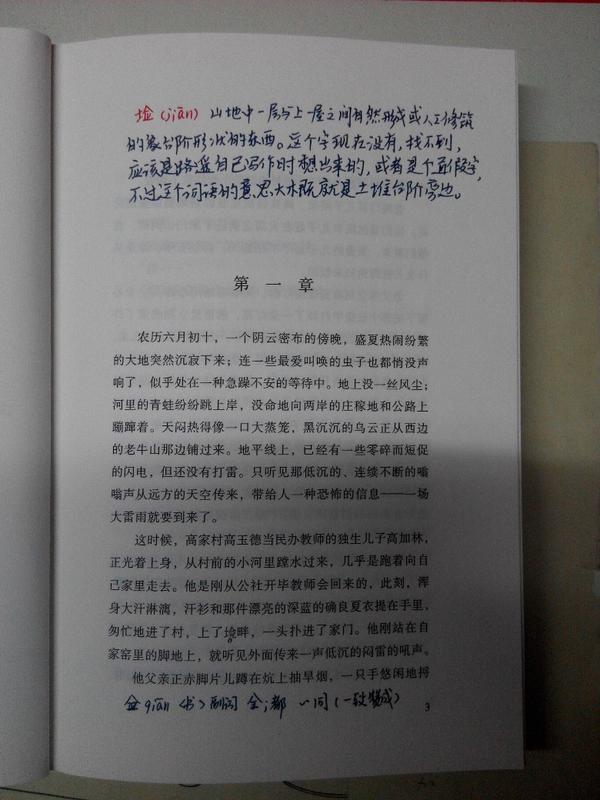 墕(jiān) 山地中一层与上一层之间自然形成或人工修筑
的象台阶形状的东西。这个字现在没有,找不到,
应该是路遥自己写作时想出来的,或者是个通假字,
不过这个词语的意思大概就是土堆台阶旁边。
第一章
农历六月初十,一个阴云密布的傍晚,盛夏热闹纷繁
的大地突然沉寂下来;连一些最爱叫唤的虫子也都悄没声
响了,似乎处在一种急躁不安的等待中。地上没一丝风尘;
河里的青蛙纷纷跳上岸,没命地向两岸的庄稼地和公路上
蹦蹿着。天闷热得像一口大蒸笼,黑沉沉的乌云正从西边
的老牛山那边铺过来。地平线上,已经有一些零碎而短促
的闪电,但还没有打雷。只听见那低沉的、连续不断的嗡
嗡声从远方的天空传来,带给人一种恐怖的信息———一场
大雷雨就要到来了。
这时候,高家村高玉德当民办教师的独生儿子高加林,
正光着上身,从村前的小河里蹚水过来,几乎是跑着向自
己家里走去。他是刚从公社开毕教师会回来的,此刻,浑
身大汗淋漓,汗衫和那件漂亮的深蓝的确良夏衣提在手里,
匆忙地进了村,上了畔,一头扑进了家门。他刚站在自
家窑里的脚地上,就听见外面传来一声低沉的闷雷的吼声。
他父亲正赤脚片儿蹲在炕上抽旱烟,一只手悠闲地捋
佥 qiān <书>副词 全;都 ~同(一致赞成)
3